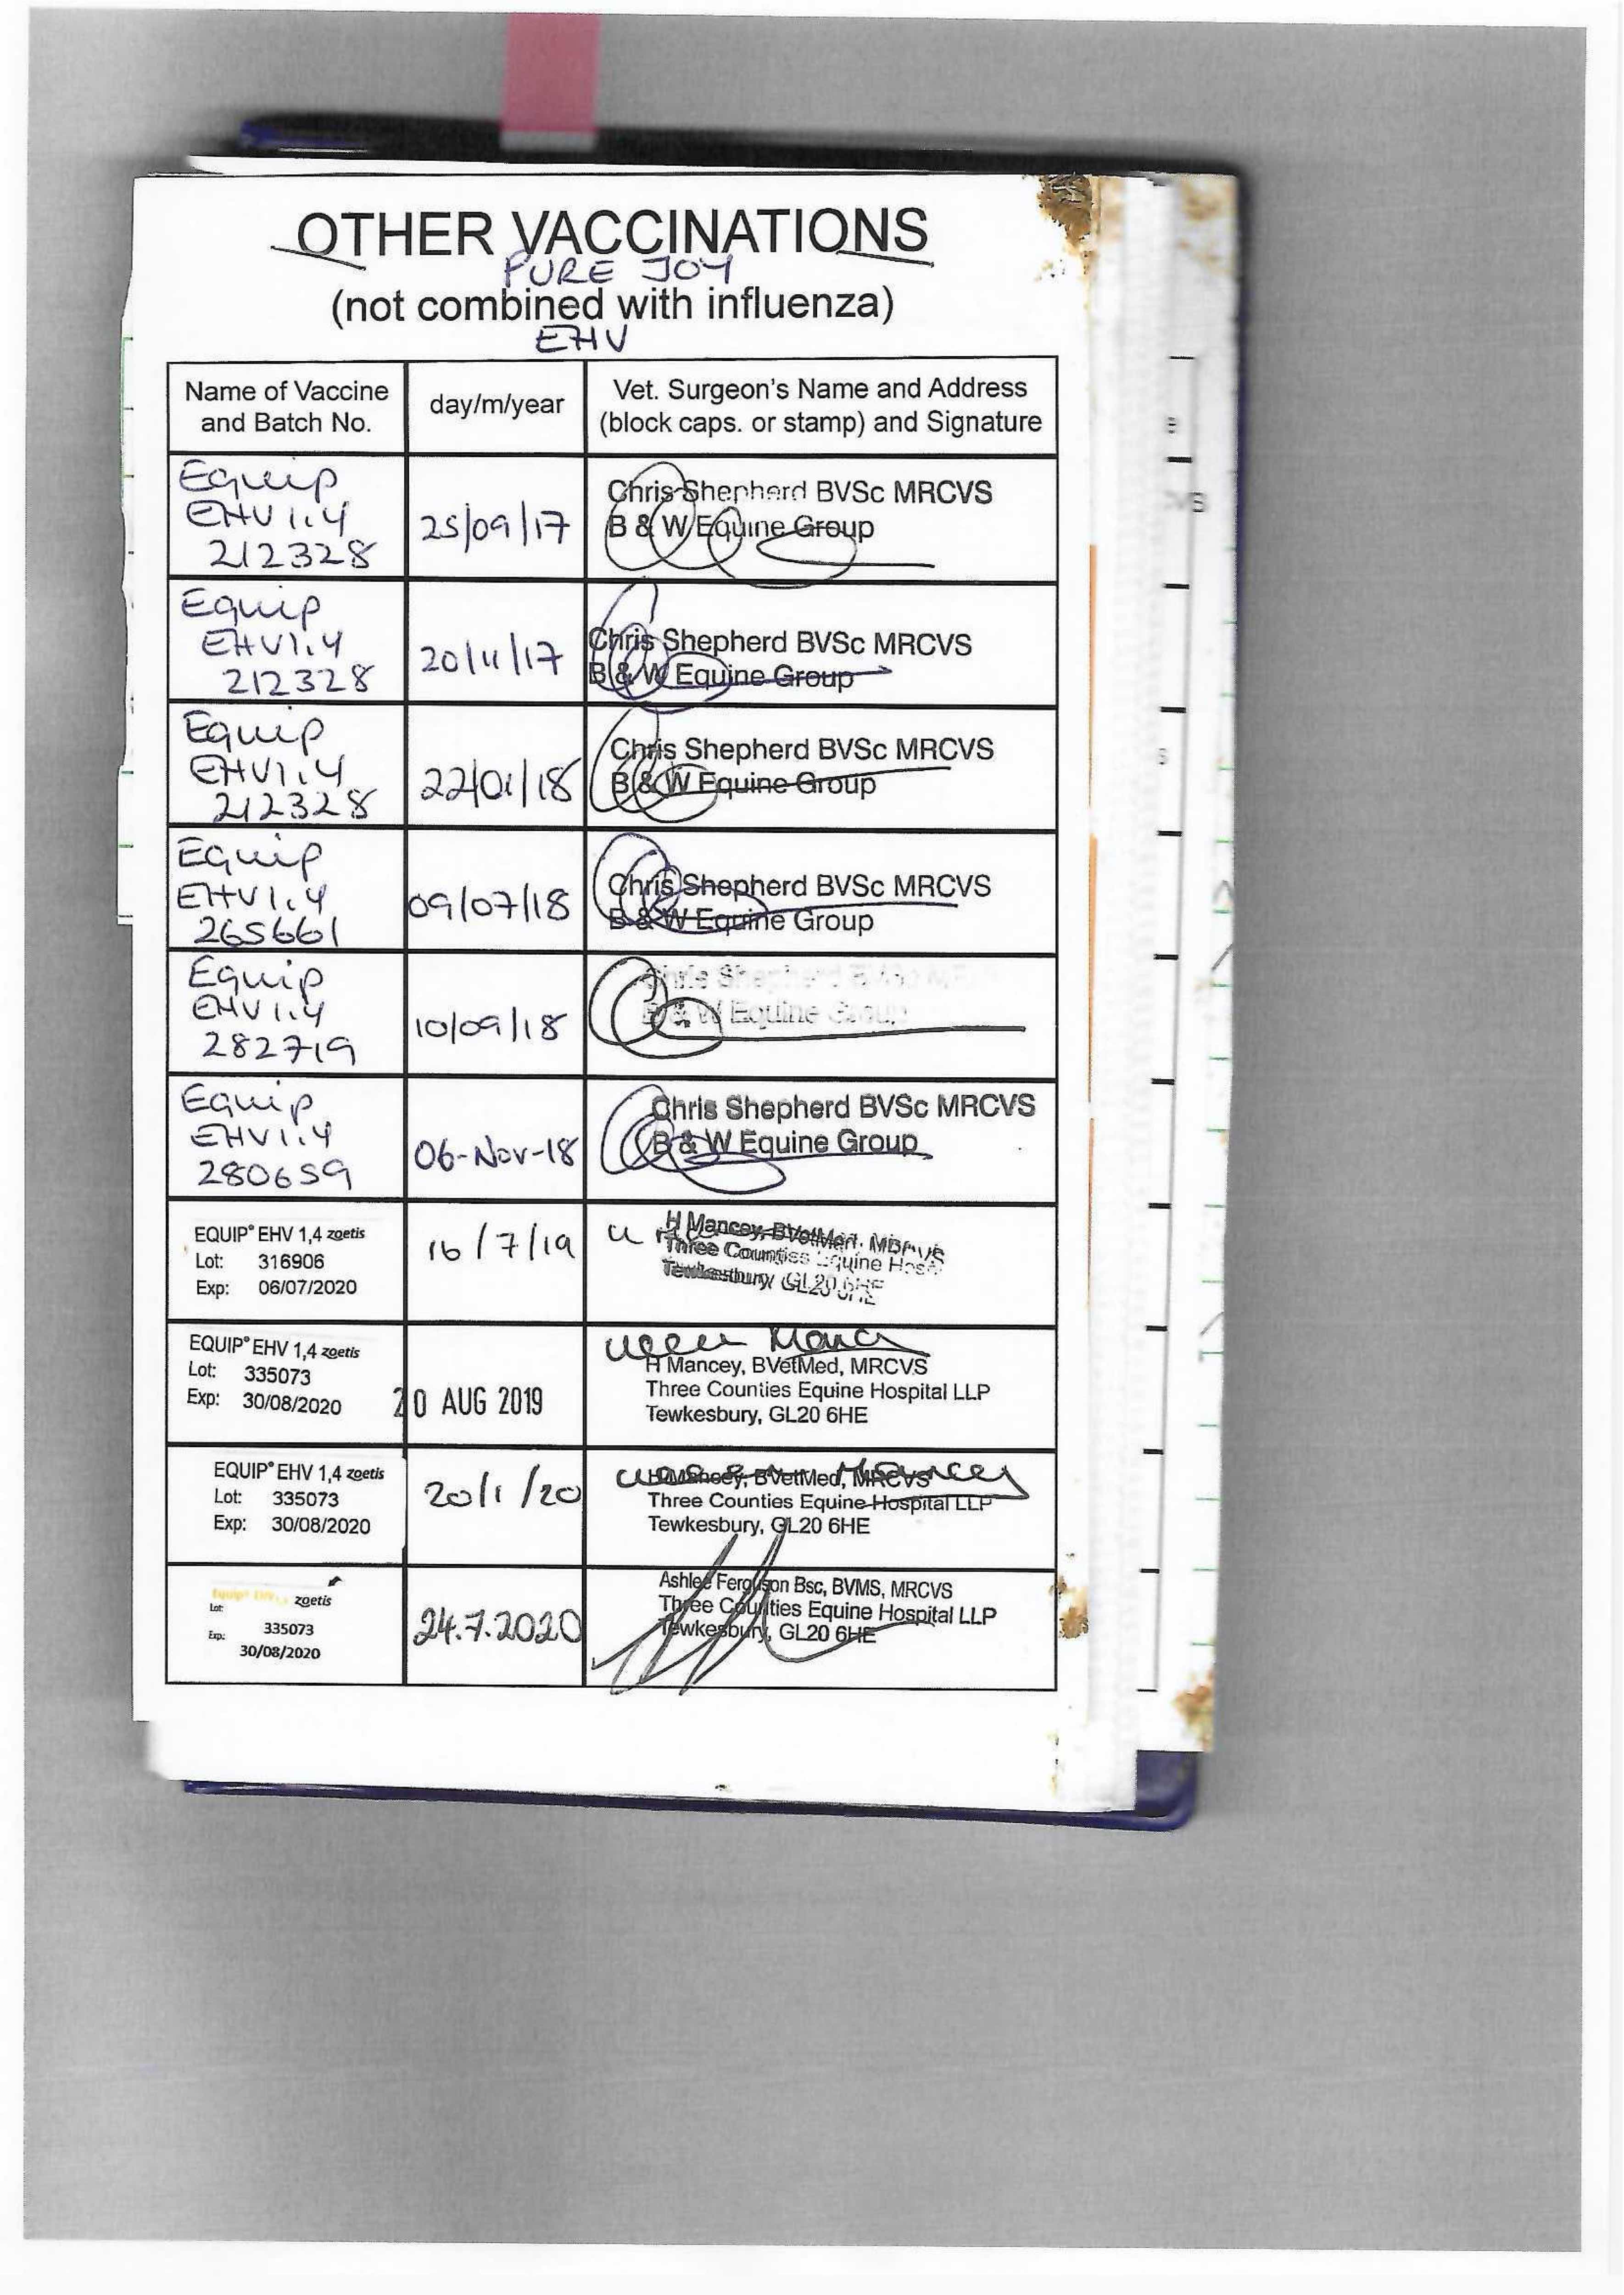 OTHER VACCINATIONS
PURE JOY
(not combined with influenza)
EHV
Name of Vaccine
and Batch No.
day/m/year
Vet. Surgeon's Name and Address
(block caps. or stamp) and Signature
Equip
EHV 1.4
212328
25/09/17
Chris Shepherd BVSc MRCVS
B & W Equine Group
Equip
EHV1.4
212328
20/11/17
Chris Shepherd BVSc MRCVS
B & W Equine Group
Equip
EHV1.4
212328
22/01/18
Chris Shepherd BVSc MRCVS
B & W Equine Group
Equip
EHV1.4
265661
09/07/18
Chris Shepherd BVSc MRCVS
B & W Equine Group
Equip
EHV1.4
282719
10/09/18
Chris Shepherd
B & W Equine Group
Equip
EHV1.4
280659
06-Nov-18
Chris Shepherd BVSc MRCVS
B & W Equine Group
EQUIP® EHV 1,4 zoetis
Lot: 316906
Exp: 06/07/2020
16/7/19
H Mancey, BVetMed,
Three Counties Equine
Tewkesbury, GL20 6HE
EQUIP® EHV 1,4 zoetis
Lot: 335073
Exp: 30/08/2020
20 AUG 2019
H Mancey, BVetMed, MRCVS
Three Counties Equine Hospital LLP
Tewkesbury, GL20 6HE
EQUIP® EHV 1,4 zoetis
Lot: 335073
Exp: 30/08/2020
20/1/20
H Mancey, BVetMed, MRCVS
Three Counties Equine Hospital LLP
Tewkesbury, GL20 6HE
Equip® zoetis
Lot:
335073
Exp:
30/08/2020
24.7.2020
Ashlee Ferguson Bsc, BVMS, MRCVS
Three Counties Equine Hospital LLP
Tewkesbury, GL20 6HE